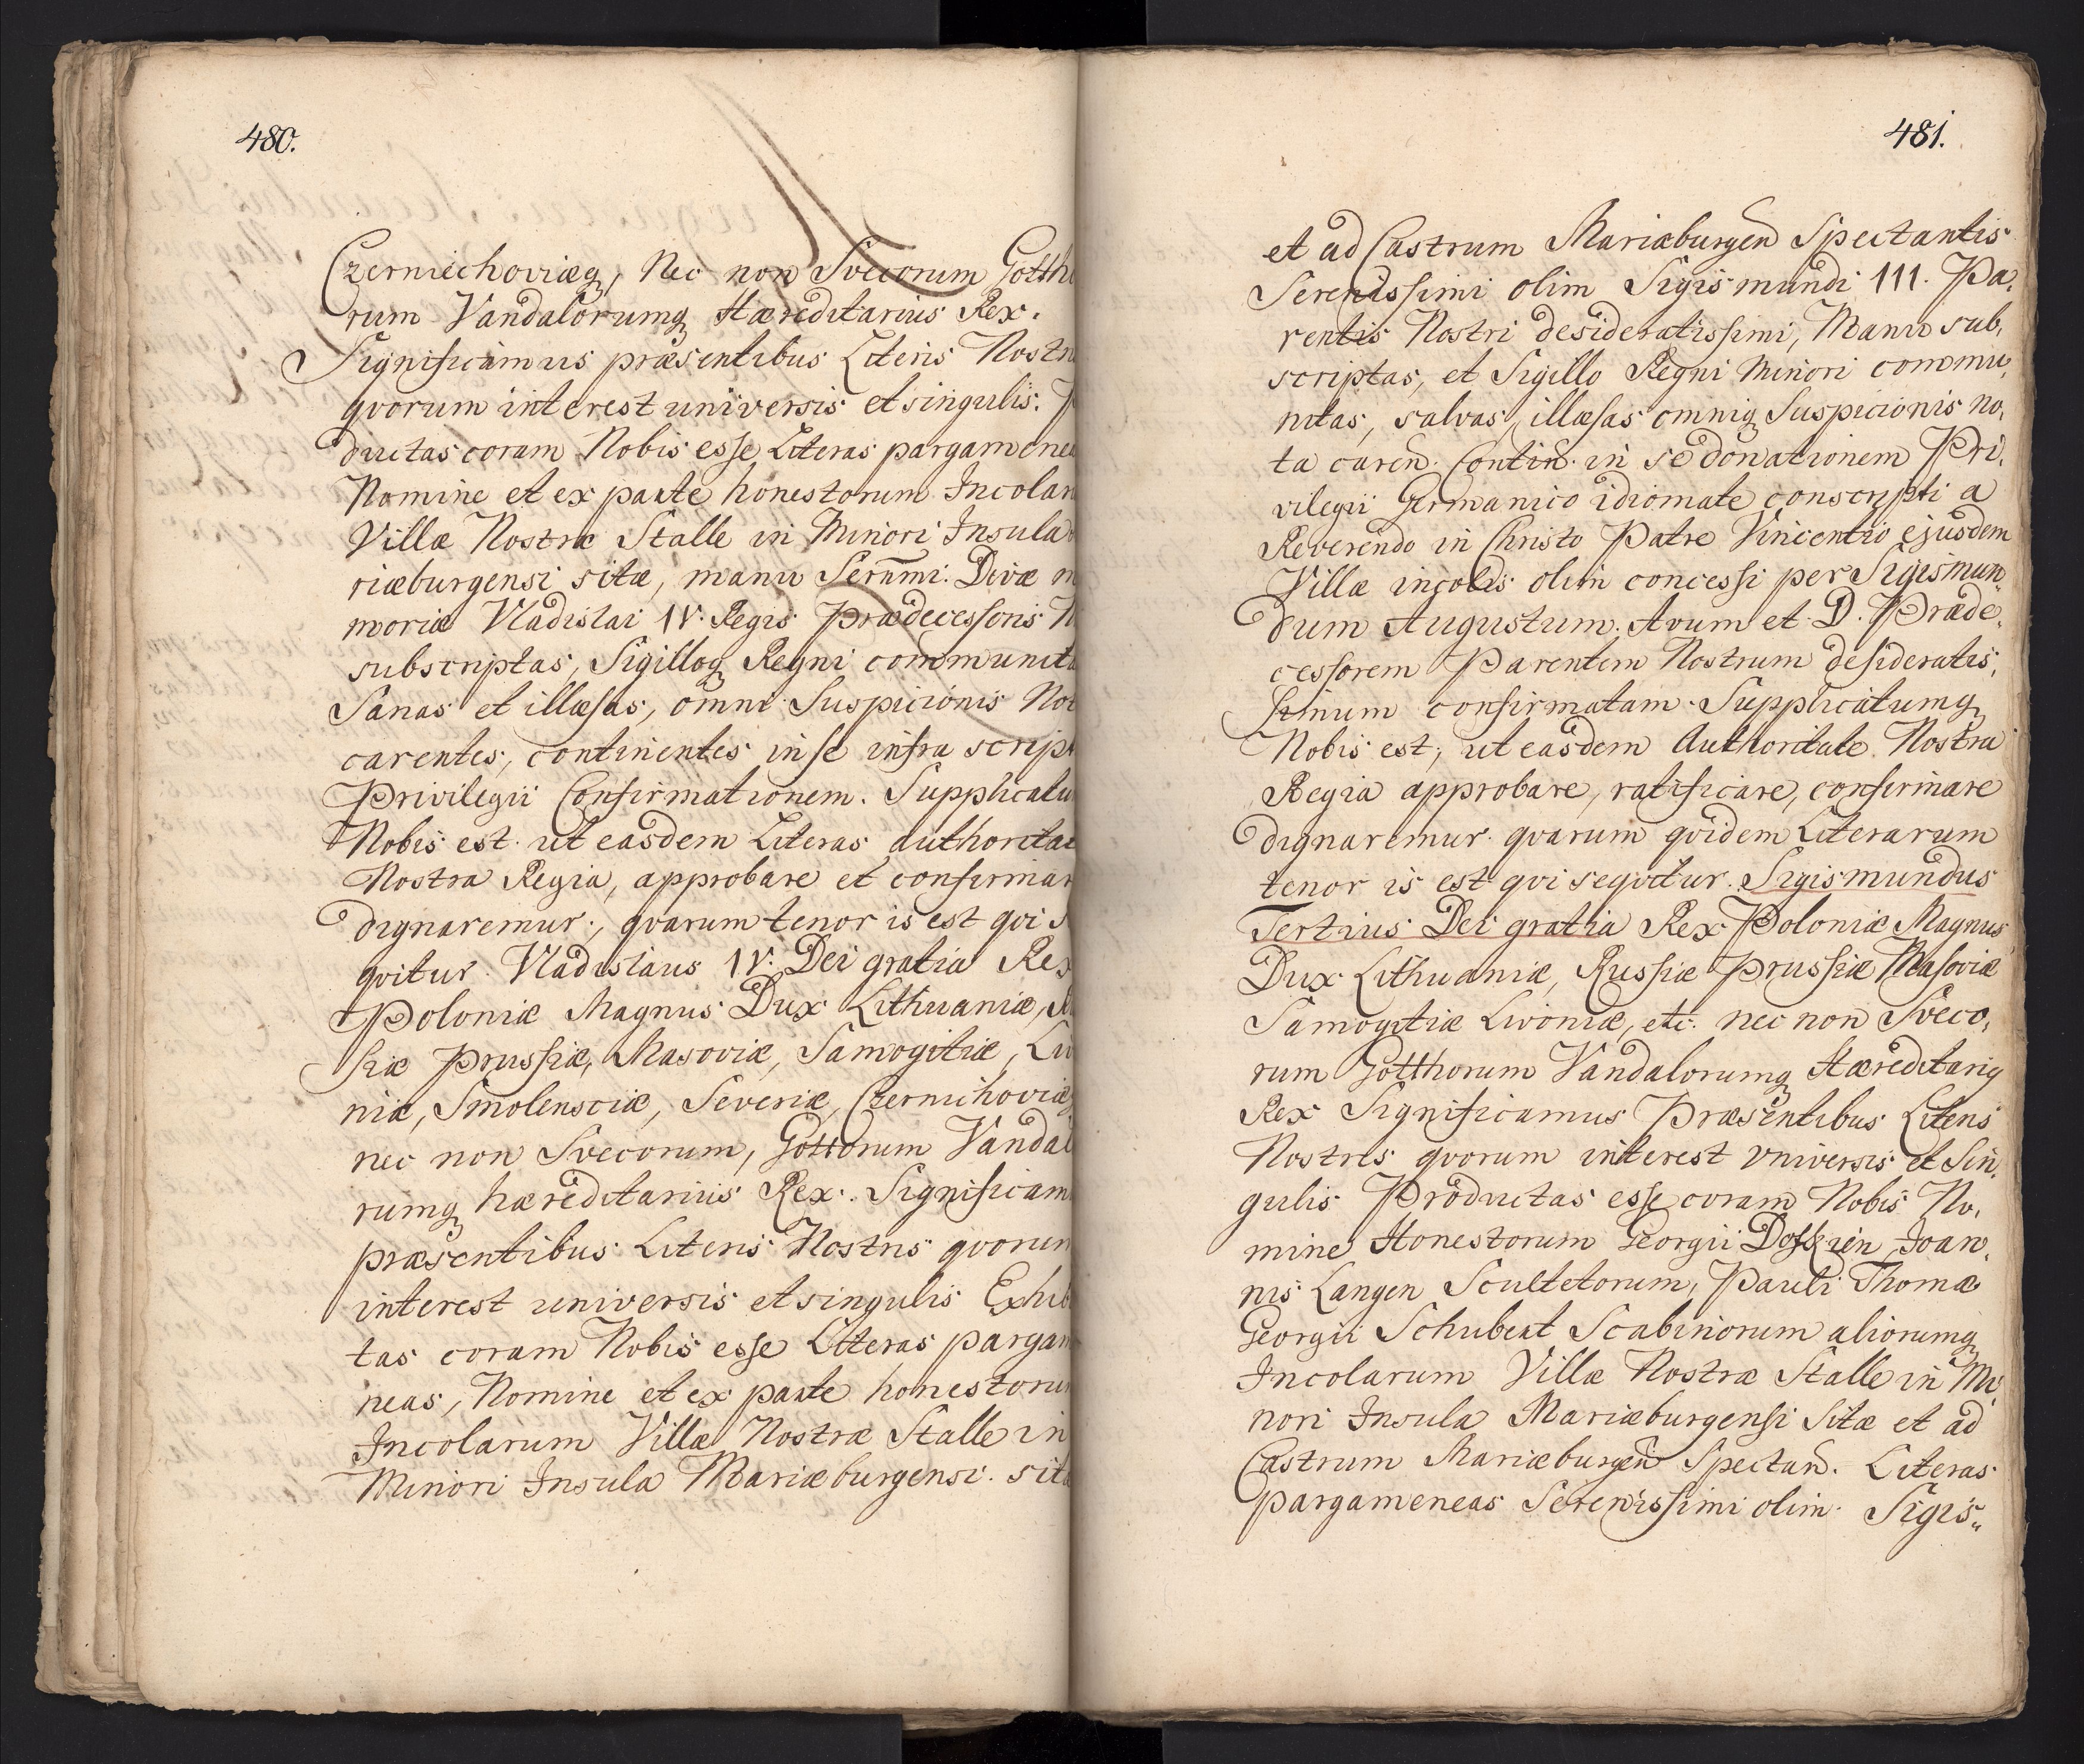 480.
Czerniechoviæq, Nec non Svecorum Gotth
rum Vandalorumq Hæreditarius Rex.
Significamus præsentibus Literis Nostr
qvorum interest universis et singulis. P
ductas coram Nobis esse Literas pargamene
Nomine et ex parte honestorum Incolar
Villæ Nostræ Stalle in Minori Insula
riæburgensi sitæ, manu Serēnmi. Divæ m
moriæ Vladislai IV. Regis Prædecessoris N
subscriptas, Sigilloq Regni communita
Sanas et illæsas, omni Suspicionis Not
carentes, continentes in se infra script
Privilegii Confirmationem. Supplicatu
Nobis est ut easdem Literas authoritat
Nostra Regia, approbare et confirmar
dignaremur, qvarum tenor is est qvi s
qvitur. Vladislaus IV. Dei gratia Rex
Poloniæ Magnus Dux Lithuaniæ, Ru
siæ Prussiæ, Masoviæ, Samogitiæ, Liv
niæ, Smolensciæ, Severiæ, Czernihoviæ
nec non Svecorum, Gottorum Vandal
rumq hæreditarius Rex. Significam
præsentibus Literis Nostris qvorum
interest universis et singulis Exhib
tas coram Nobis esse Literas pargam
neas, Nomine et ex parte honestorum
Incolarum Villæ Nostræ Stalle in
Minori Insula Mariæburgensi. sitæ
481.
et ad Castrum Mariæburgen Spectantis
Serenissimi olim Sigismundi III. Pa,
rentis Nostri desideratissimi, Manu sub,
scriptas, et Sigillo Regni Minori commu,
nitas, salvas, illæsas omniq Suspicionis no,
ta caren. Contin. in se donationem Pri,
vilegii Germanico idiomate conscripti a
Reverendo in Christo Patre Vincentio ejusdem
Villæ incolis olim concessi per Sigismun,
dum Augustum. Avum et D. Præde,
cessorem Parentem Nostrum desideratis,
simum confirmatam. Supplicatumq
Nobis est, ut easdem Authoritate Nostra
Regia approbare, ratificare, confirmare
dignaremur. qvarum qvidem Literarum
tenor is est qvi seqvitur. Sigismundus
Tertius Dei gratia Rex Poloniæ Magnus
Dux Lithuaniæ, Russiæ Prussiæ Masoviæ
Samogitiæ Livoniæ, etc. nec non Sveco,
rum Gotthorum Vandalorumq Hæreditariq
Rex Significamus Præsentibus Literis
Nostris qvorum interest Vniversis et Sin,
gulis Productas esse coram Nobis No,
mine Honestorum Georgii Joan,
nis Langen Scultetorum, Pauli Thomæ
Georgii Schubert Scabinorum aliorumq
Incolarum Villæ Nostræ Stalle in Mi
nori Insula Mariæburgensi Sitæ et ad
Castrum Mariæburgen Spectan. Literas
pargameneas Serenissimi olim Sigis,,